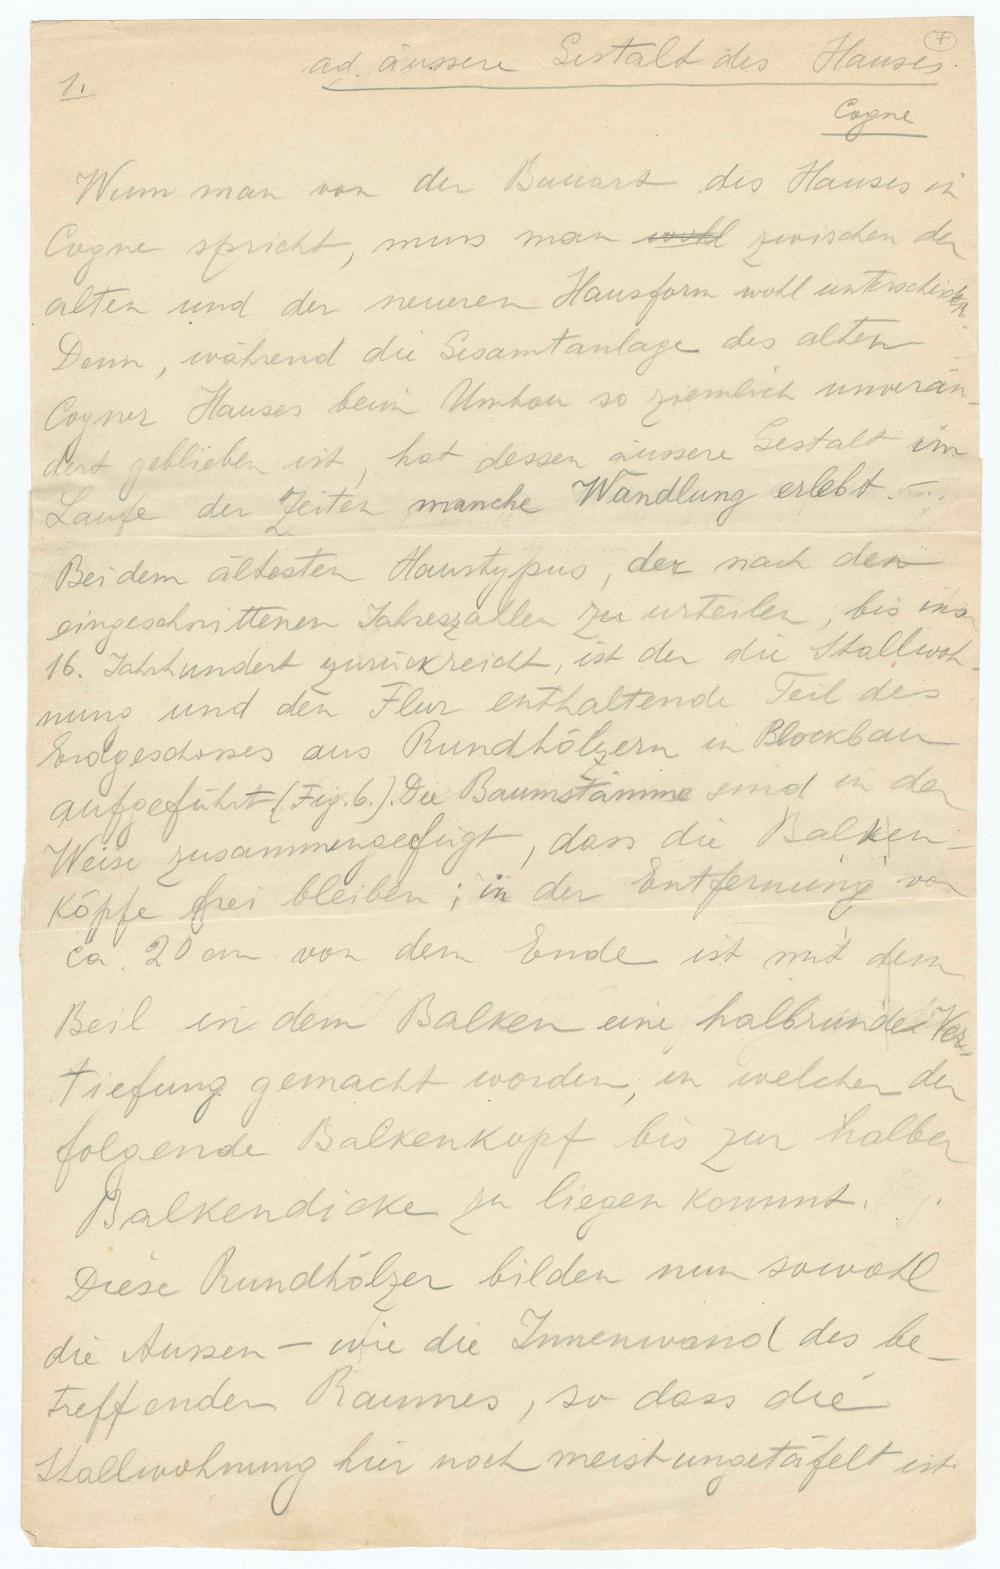 7
1.
ad. äussere Gestalt des Hauses.
Cogne
Wenn man von der Bauart des Hauses in
Cogne spricht, muss man wohl zwischen der
alten und der neueren Hausform wohl unterscheiden.
Denn, während die Gesamtanlage des alten
Cogner Hauses beim Umbau so ziemlich unverän-
dert geblieben ist, hat dessen äussere Gestalt im
Laufe der Zeiten manche Wandlung erlebt. –
Bei dem ältesten Haustypus, der nach den
eingeschnittenen Jahreszallen zu urteilen, bis ins
16. Jahrhundert zurückreicht, ist der die Stallwoh-
nung und den Flur enthaltende Teil des
Erdgeschosses aus Rundhölzern in Blockbau
aufgeführt (Fig. 6.). Die Baumstämme sind in der
Weise zusammengefügt, dass die Balken-
köpfe frei bleiben; in der Entfernung von
ca. 20 cm von dem Ende ist mit dem
Beil in dem Balken eine halbrunde Ver-
tiefung gemacht worden, in welcher der
folgende Balkenkopf bis zur halben
Balkendicke zu liegen kommt.
Diese Rundhölzer bilden nun sowohl
die Aussen – wie die Innenwand des be-
treffenden Raumes, so dass die
Stallwohnung hier noch meist ungetäfelt ist.